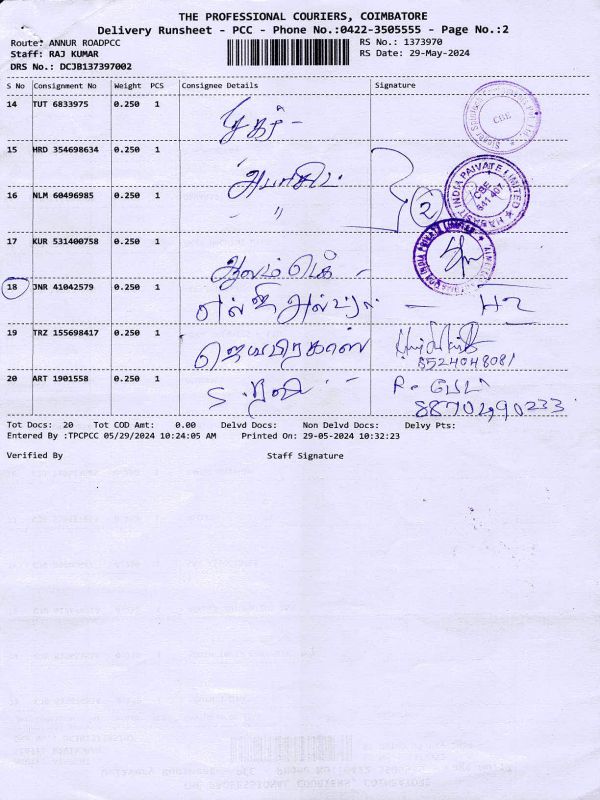 THE PROFESSIONAL COURIERS, COIMBATORE
Delivery Runsheet - PCC - Phone No.:0422-3505555 - Page No.:2
Route: ANNUR ROADPCC RS No.: 1373970
Staff: RAJ KUMAR RS Date: 29-May-2024
DRS No.: DCJB137397002
S No Consignment No Weight PCS Consignee Details Signature
14 TUT 6833975 0.250 1
CBE
15 HRD 354698634 0.250 1
16 NLM 60496985 0.250 1 〃 2
HABASIT INDIA PRIVATE LIMITED
CBE
641 407
17 KUR 531400758 0.250 1
INDIA PRIVATE LIMITED
18 JNR 41042579 0.250 1
19 TRZ 155698417 0.250 1 ஜெயபிரகாஸ்
8524048081
20 ART 1901558 0.250 1 S. ரவி
8870290233
Tot Docs: 20 Tot COD Amt: 0.00 Delvd Docs: Non Delvd Docs: Delvy Pts:
Entered By :TPCPCC 05/29/2024 10:24:05 AM Printed On: 29-05-2024 10:32:23
Verified By Staff Signature